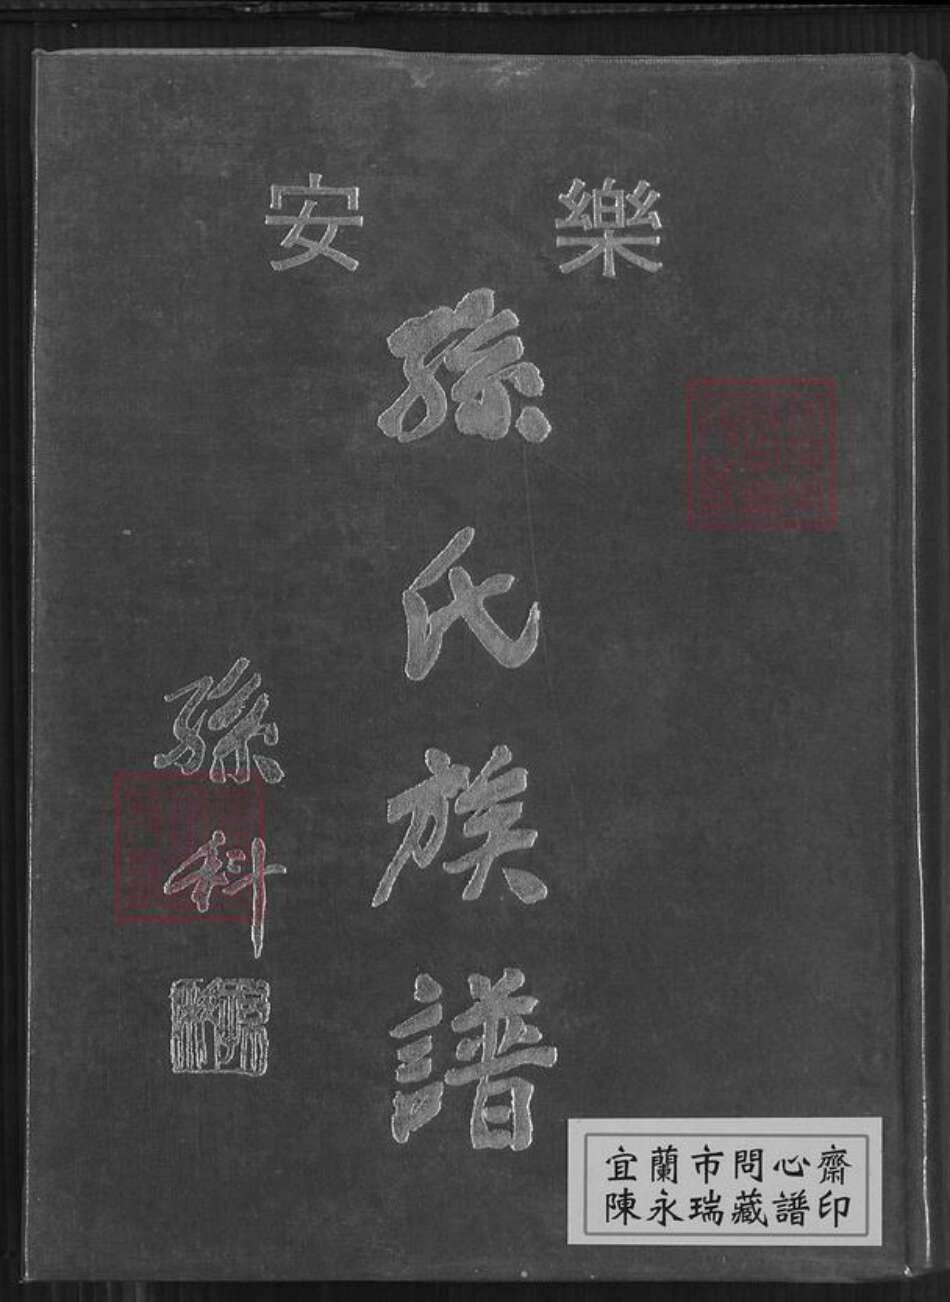 樂安
孫氏族譜
孫科
宜蘭市問心齋
陳永瑞藏譜印